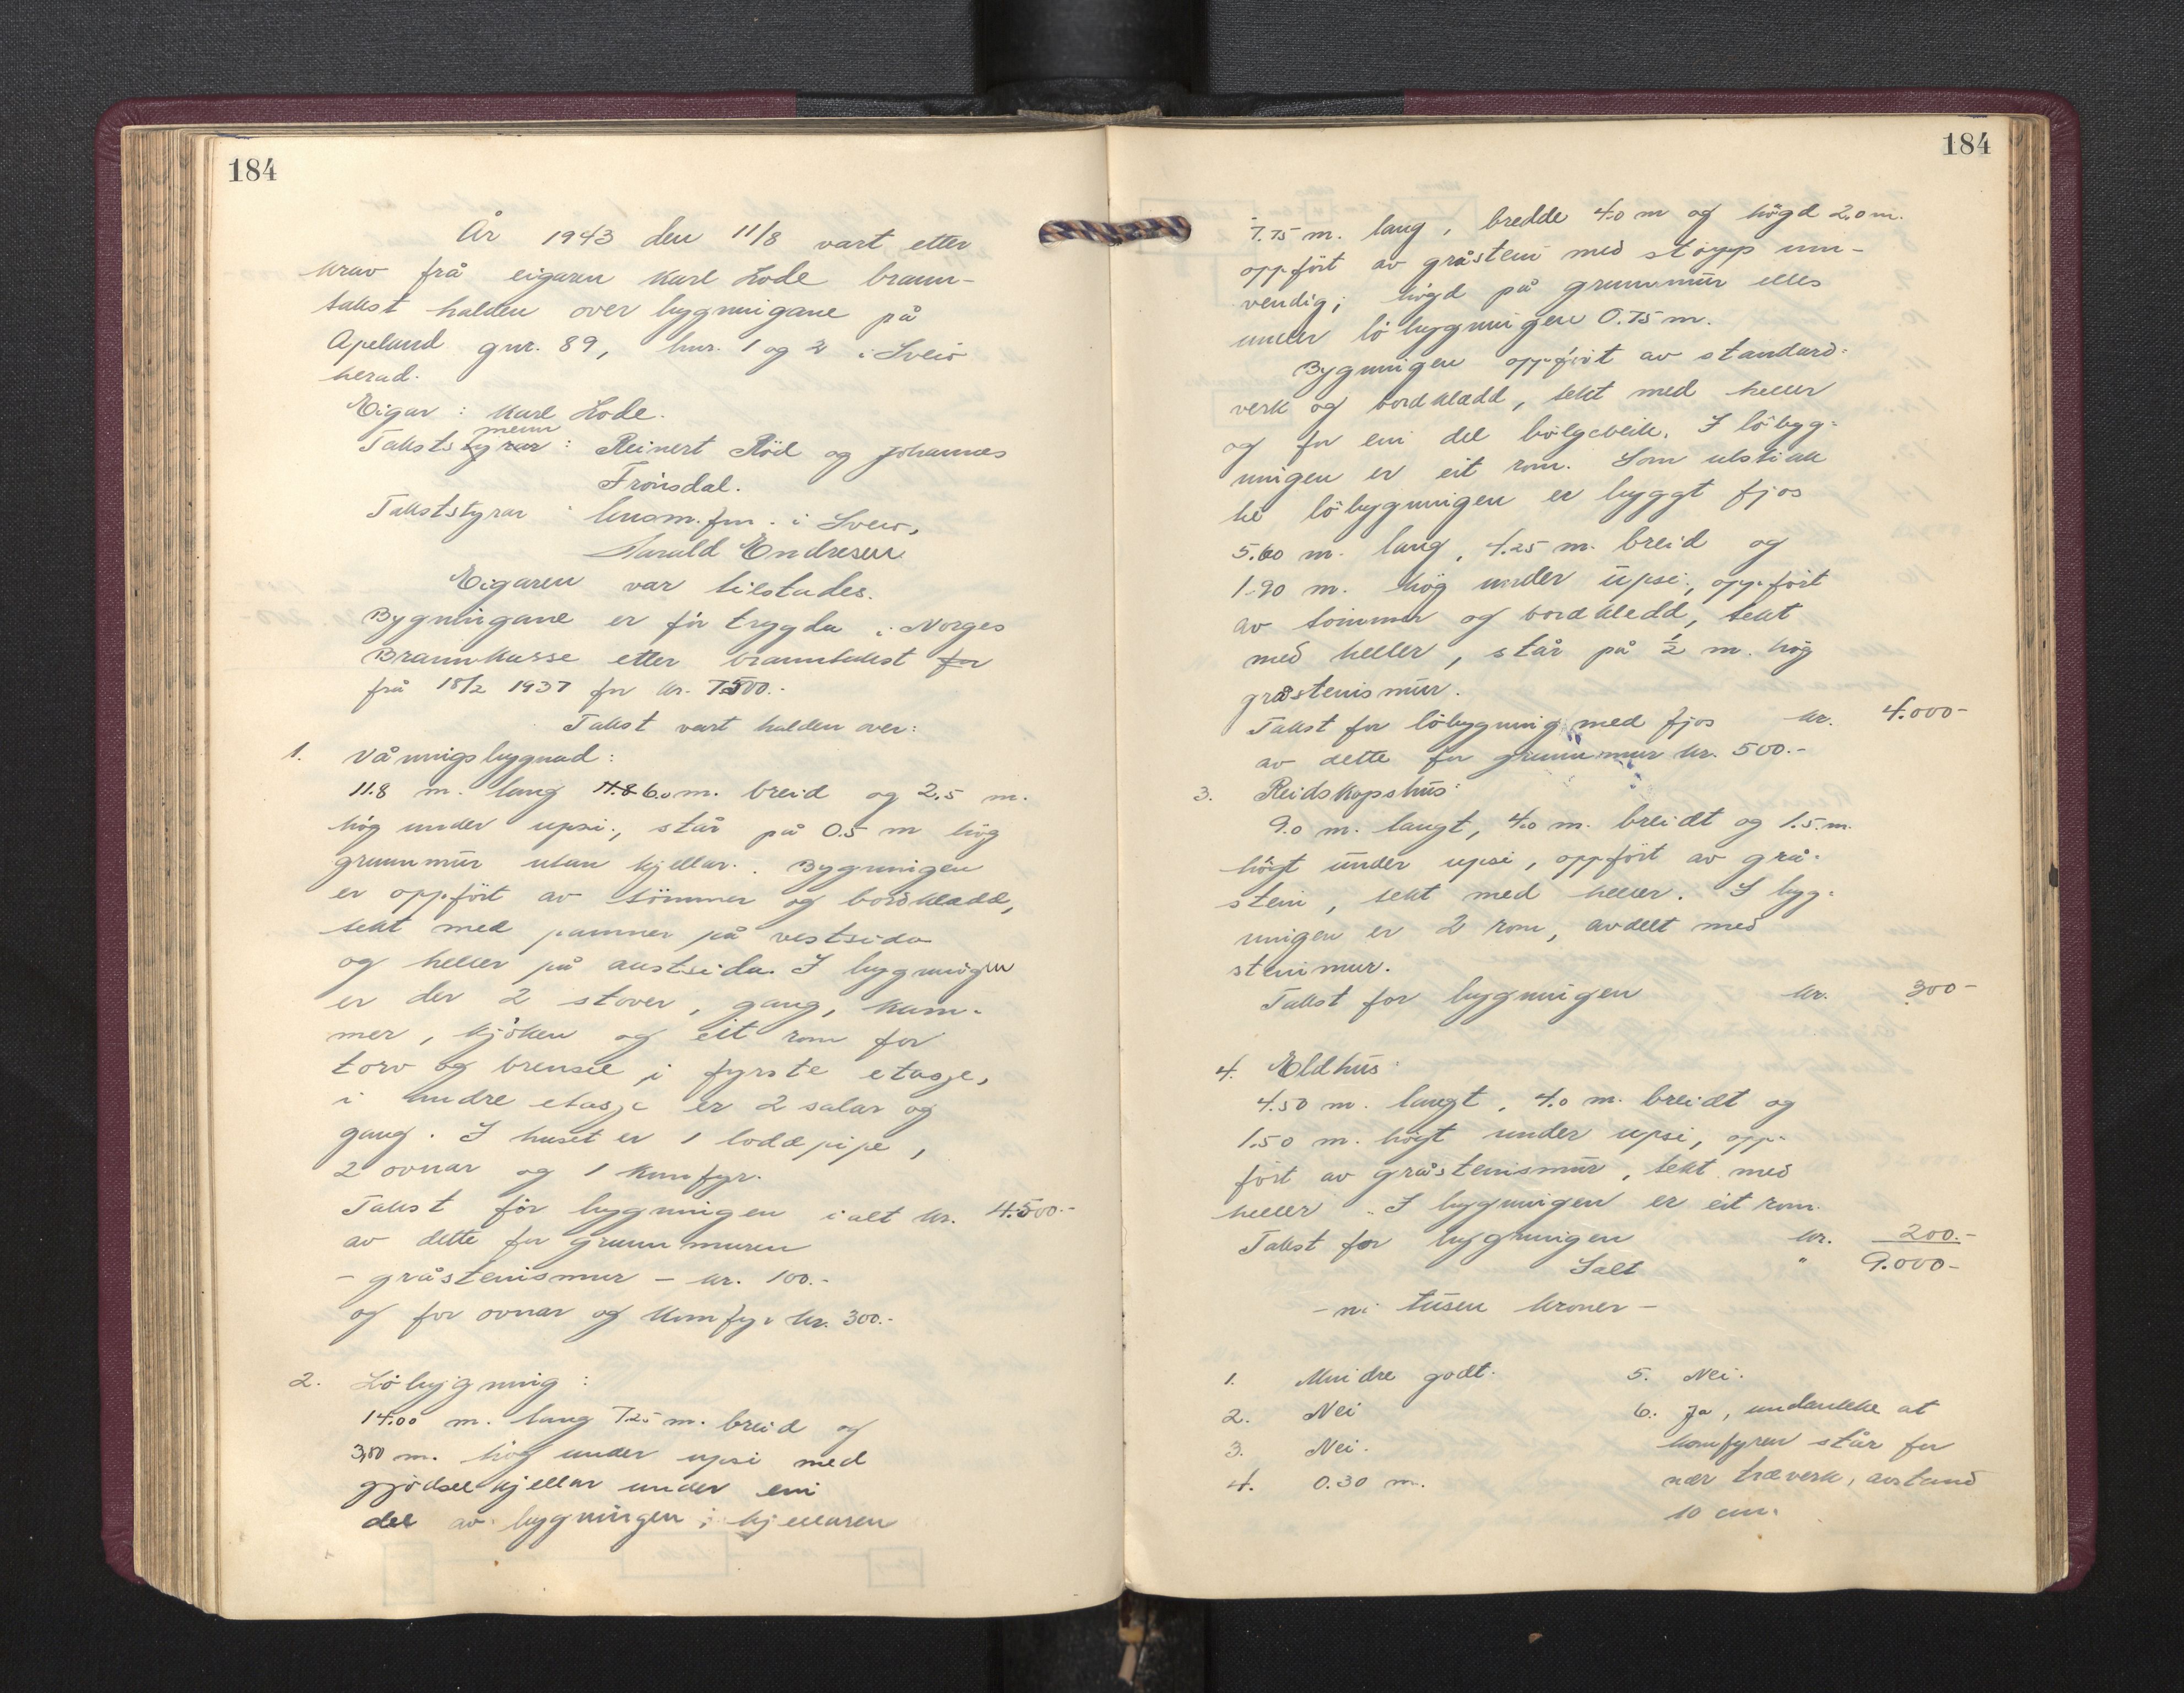 184
År 1943 den 11/8 vart etter
krav frå eigaren Karl Lode brann-
takst halden over bygningane på
Apeland gnr. 89, bnr. 1 og 2 i Sveio
herad.
Eigar: Karl Lode.
menn
Takststyrar: Reinert Röd og Johannes
Frönsdal.
Takststyrar: lensm.fm. i Sveio,
Harald Endresen
Eigaren var tilstades.
Bygningane er för trygda i Norges
Brannkasse etter branntakst for
frå 18/2 1937 for kr. 7500.-
Takst vart halden over:
1. Våningsbygnad:
11.8 m. lang 11.8 6.0 m. breid og 2.5 m.
hög under upsi., står på 0.5 m hög
grunnmur utan kjellar. Bygningen
er oppfört av tömmer og bordkledd,
tekt med panner på vestsida
og heller på austsida. I bygningen
er der 2 stover, gang, kam-
mer, kjöken og eit rom for
torv og brensel i fyrste etasje,
i andre etasje er 2 salar og
gang. I huset er 1 lodd pipe,
2 ovnar og 1 komfyr.
Takst for bygningen ialt kr. 4.500.-
av dette for grunnmuren
- gråsteinsmur - kr. 100.-
og for ovnar og komfyr kr. 300.-
2. Löbygning:
14.00 m. lang 7.25 m. breid og
3,00 m. hög under upsi med
gjödselkjellar under ein
del av bygningen; kjellaren
184
7.75 m. lang, bredde 4.0 m og högd 2,0 m.
oppfört av gråstein med støpp inn-
vendig; högd på grunnmur elles
under löbygningen 0.75 m.
Bygningen oppfört av standard-
verk og bordkledd, tekt med heller
og for ein del bölgeblikk. I löbyg-
ningen er eit rom. Som utstikk
til löbygningen er byggt fjos
5.60 m. lang, 4.25 m. breid og
1.90 m. hög under upsi, oppfört
av tömmer og bordkledd, tekt
med heller, står på 1/2 m. hög
gråsteinsmur.
Takst for löbygning med fjos kr. 4.000-
av dette for grunnmur kr. 500.-
3. Reidskapshus:
9.0 m. langt, 4.0 m. breidt og 1.5 m.
högt under upsi, oppfört av grå-
stein, tekt med heller. I byg-
ningen er 2 rom, avdelt med
steinmur.
Takst for bygningen kr. 300-
4. Eldhus:
4.50 m. langt, 4.0 m. breidt og
1.50 m. högt under upsi, opp-
fört av gråsteinsmur, tekt med
heller. I bygningen er eit rom.
Takst for bygningen kr. 200.-
Ialt " 9.000-
- ni tusen kroner -
1. Mindre godt.
2. Nei
3. Nei.
4. 0.30 m.
5. Nei.
6. Ja, undanteke at
komfyren står for
nær treverk, avstand
10 cm.